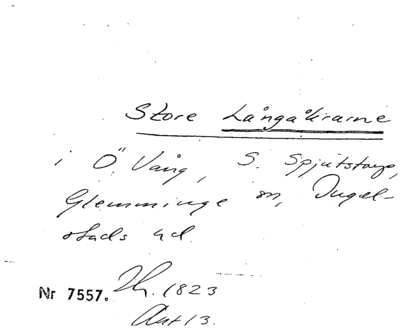 Store Långåkrarne
i Ö. Vång, S. Spjutstorp,
Glemminge sn, Ingel-
stads hd
Nr 7557. Th. 1823
Akt 13.